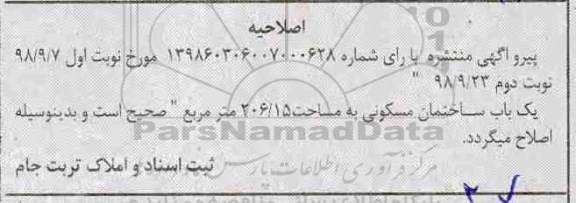 اصلاحیه
پیرو اگهی منتشره با رای شماره ۱۳۹۸۶۰۳۰۶۰۰۷۰۰۰۶۲۸ مورخ نوبت اول ۹۸/۹/۷
نوبت دوم ۹۸/۹/۲۳ "
یک باب ساختمان مسکونی به مساحت۲۰۶/۱۵ متر مربع " صحیح است و بدینوسیله
اصلاح میگردد.
ParsNamadData
ثبت اسناد و املاک تربت جام